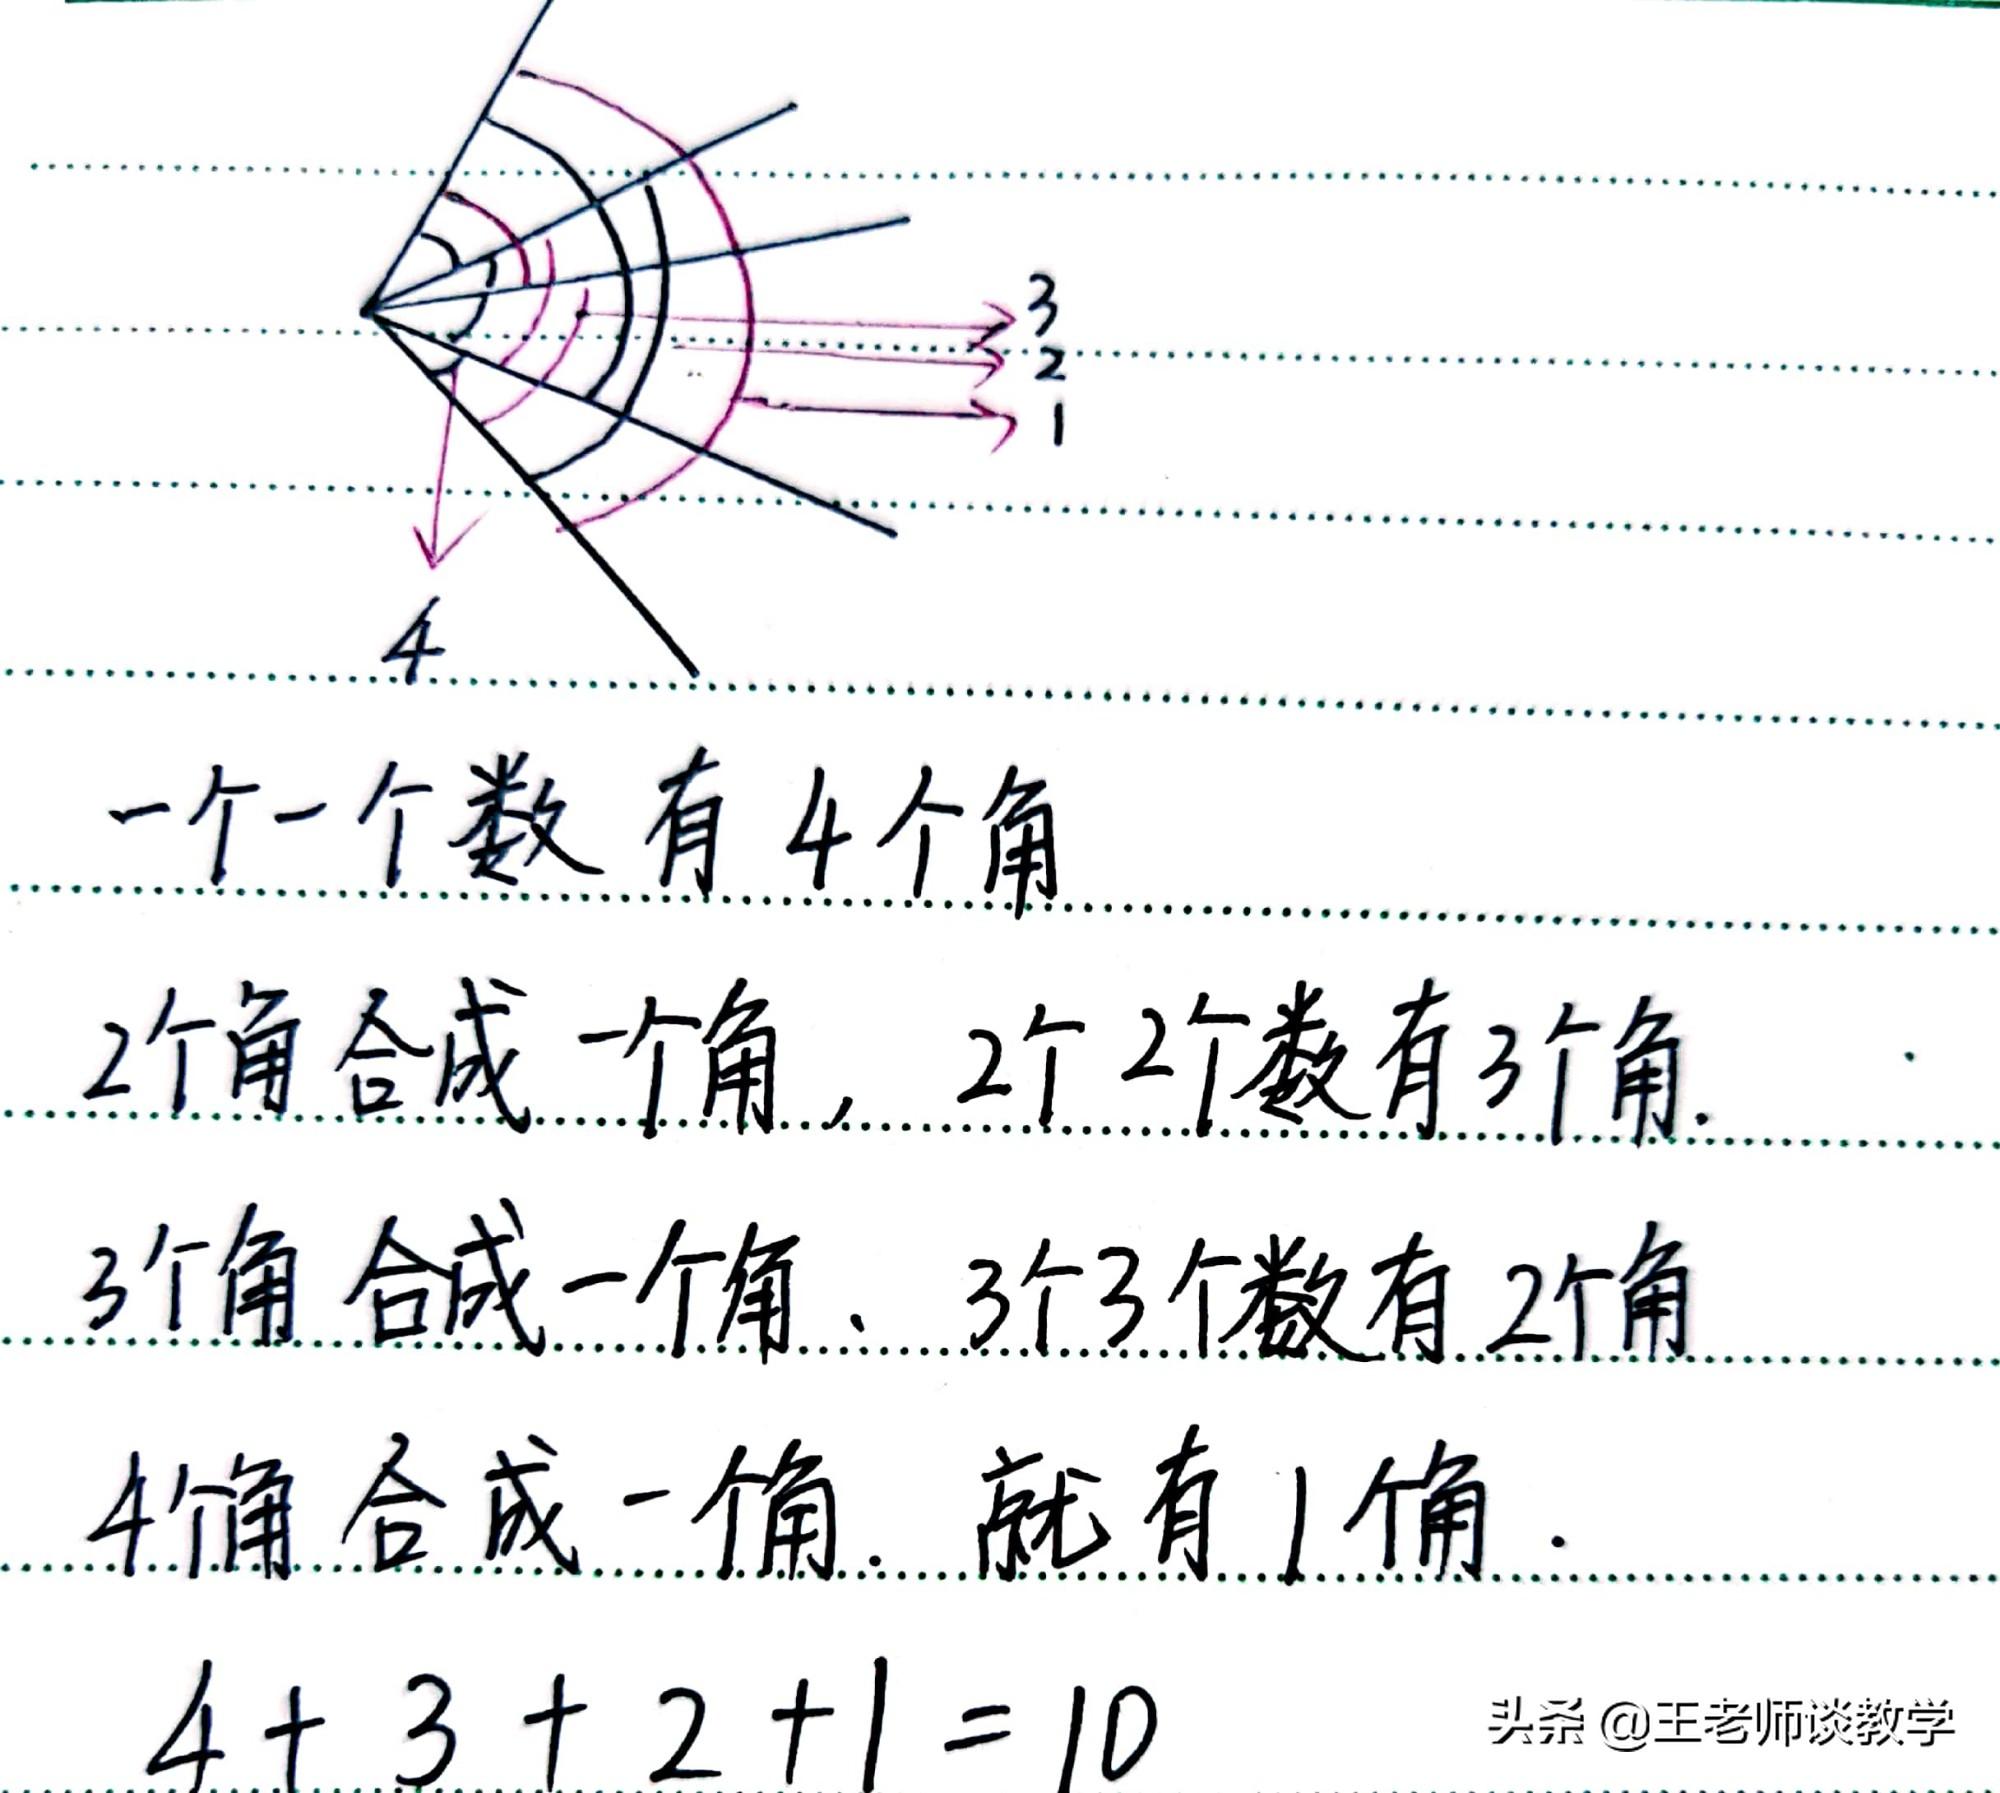 3
2
1
4
一个一个数有4个角
2个角合成一个角，2个2个数有3个角.
3个角合成一个角、3个3个数有2个角
4个角合成一个角.就有1个角.
4+3+2+1=10
头条 @王老师谈教学